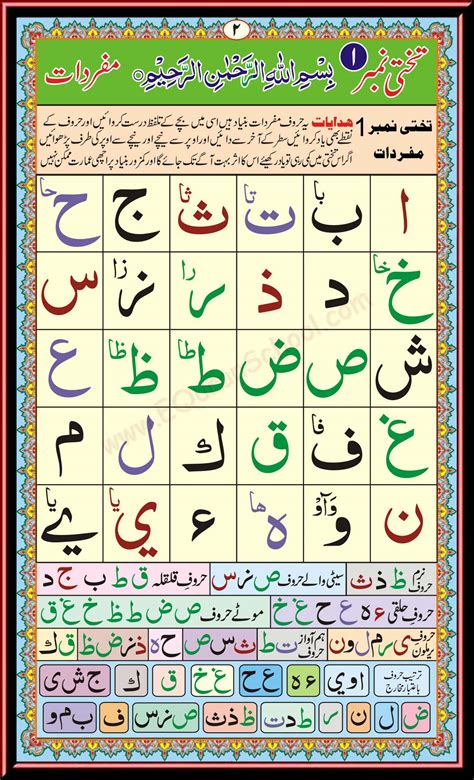 ۲
تختی نمبر ۱ بِسْمِ اللّٰهِ الرَّحْمٰنِ الرَّحِيْمِ مفردات
تختی نمبر 1 مفردات
هدایات یہ حروف مفردات بنیاد ہیں اسی میں بچے کے تلفظ درست کروائیں اور حروف کے
نقطے بھی یاد کروائیں سطر کے آخر سے دائیں اور نیچے سے اوپر کی طرف پڑھوائیں
اگر اس تختی میں کمی رہی تو یاد رکھئے اس کا اثر بہت آگے تک جائے گا اور کمزور بنیاد پر اچھی عمارت ممکن نہیں
ا ب با ت تا ث ثا ج ح حا
خ خا د ذ ر را ز زا س
ش ص ض ط طا ظ ظا ع
غ ف فا ق ك ل م
ن و وَاوْ ه ها ء ي يا ے يا
نرم حروف ظ ذ ث سیٹی والے حروف ص ز س حروف قلقلہ ق ط ب ج د
حروف حلقی ء ه ع ح غ خ موٹے حروف خ ص ض ط ظ غ ق
حروف یرملون ی ر م ل و ن ہم آواز حروف ت ط ث س ص ح ه ذ ز ظ ض ق ك
ترتیب حروف باعتبار مخارج ا و ي ء ه ع ح غ خ ق ك ج ش ی
ض ل ن ر ط د ت ظ ذ ث ص ز س ف ب م و
www.EQuranSchool.com